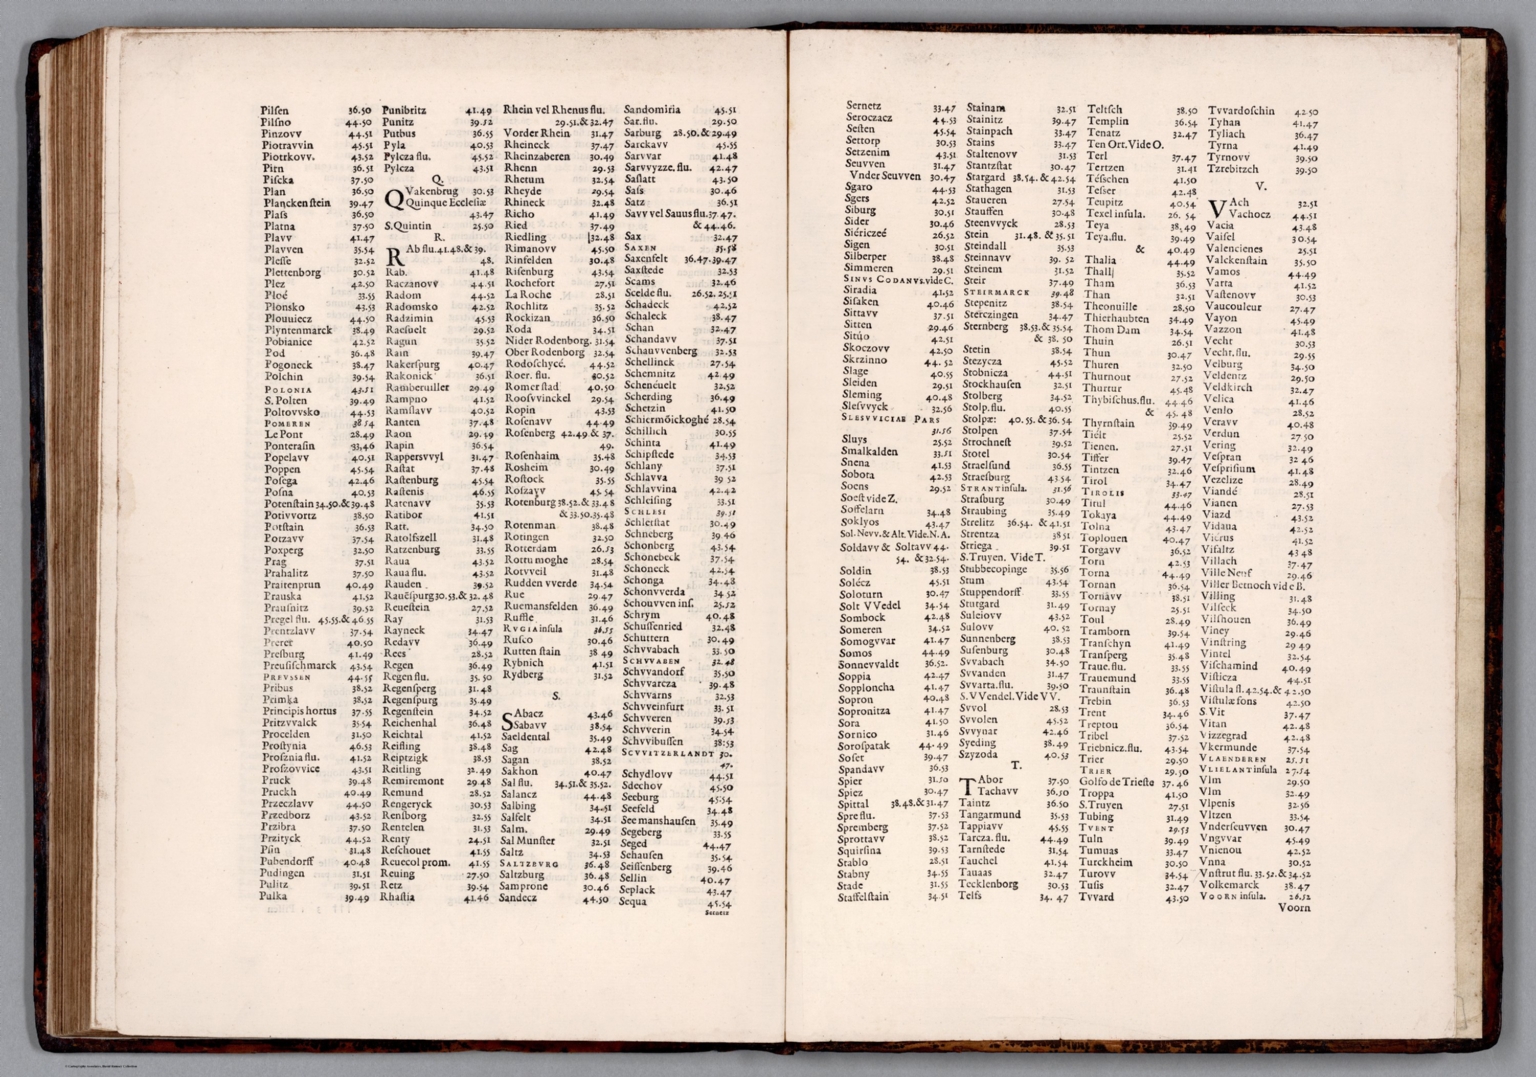 Pilſen 36.50
Pilſno 44.50
Pinzovv 44.51
Piotravvin 45.51
Piotrkovv. 43.52
Pirn 36.51
Piſcka 37.50
Plan 36.50
Planckenſtein 39.47
Plaſs 36.50
Platna 37.50
Plavv 41.47
Plavven 35.54
Pleſſe 32.52
Plettenborg 30.52
Plez 42.50
Ploé 33.55
Plonsko 43.53
Plouuiecz 44.50
Plyntenmarck 38.49
Pobianice 42.52
Pod 36.48
Pogoneck 38.47
Polchin 39.54
POLONIA 43.51
S. Polten 39.49
Poltrovvsko 44.53
POMEREN 38.54
Le Pont 28.49
Ponteraſin 33.46
Popelavv 40.51
Poppen 45.54
Poſega 42.46
Poſna 40.53
Potenſtain 34.50.&39.48
Potivvortz 38.50
Potſtain 36.53
Potzavv 37.54
Poxperg 32.50
Prag 37.51
Prahalitz 37.50
Praitenprun 40.49
Prauska 41.52
Prauſnitz 39.52
Pregel flu. 45.55.&46.55
Prentzlavv 37.54
Prerer 40.50
Preſburg 41.49
Preuſiſchmarck 43.54
PREVSSEN 44.55
Pribus 38.52
Primka 38.52
Principis hortus 37.55
Pritzvvalck 35.54
Procelden 31.50
Proſtynia 46.53
Proſznia flu. 41.52
Proſzovvice 43.51
Pruck 39.48
Pruckh 40.49
Przeczlavv 44.50
Przedborz 43.52
Przibra 37.50
Przityck 44.52
Pſin 31.48
Pubendorff 40.48
Pudingen 31.51
Pulitz 39.51
Pulka 39.49
Punibritz 41.49
Punitz 39.52
Putbus 36.55
Pyla 40.53
Pylcza flu. 45.52
Pylcza 43.51
Q.
QVakenbrug 30.53
Quinque Ecleſiæ
43.47
S. Quintin 25.50
R.
RAb flu. 41.48.& 39.
48.
Rab. 41.48
Raczanovv 44.51
Radom 44.52
Radomsko 42.52
Radzimin 45.53
Raeſuelt 29.52
Ragun 35.52
Rain 39.47
Rakerſpurg 40.47
Rakonick 36.51
Ramberuiller 29.49
Rampno 41.52
Ramſlavv 40.52
Ranten 37.48
Raon 29.49
Rapin 36.54
Rappersvvyl 31.47
Raſtat 37.48
Raſtenburg 45.54
Raſtenis 46.55
Ratenavv 35.53
Ratibor 41.51
Ratt. 34.50
Ratolfszell 31.48
Ratzenburg 33.55
Raua 43.52
Raua flu. 43.52
Rauden 39.52
Rauēſpurg 30.53.& 32.48
Reueſtein 27.52
Ray 31.53
Rayneck 34.47
Redavv 36.49
Rees 28.52
Regen 36.49
Regen flu. 35.50
Regenſperg 31.48
Regenſpurg 35.49
Regenſtein 34.52
Reichenhal 36.48
Reichtal 41.52
Reifling 38.48
Reiptzigk 38.53
Reitling 32.49
Remiremont 29.48
Remund 28.52
Rengeryck 30.53
Renſborg 32.55
Rentelen 31.53
Renty 24.51
Reſchouet 41.55
Reuecol prom. 41.55
Reuing 27.50
Retz 39.54
Rhaſtia 41.46
Rhein vel Rhenus flu.
29.51.& 32.47
Vorder Rhein 31.47
Rheineck 37.47
Rheinzaberen 30.49
Rhenn 29.53
Rhetum 32.54
Rheyde 29.54
Rhineck 32.48
Richo 41.49
Ried 37.49
Riedling 32.48
Rimanovv 45.50
Rinfelden 30.48
Riſenburg 43.54
Rochefort 27.51
La Roche 28.51
Rochlitz 35.52
Rockizan 36.50
Roda 34.51
Nider Rodenborg. 31.54
Ober Rodenborg 32.54
Rodoſchycé. 44.52
Roer. flu. 40.52
Romerſtad 40.50
Rooſvvinckel 29.54
Ropin 43.53
Roſenavv 44.49
Roſenberg 42.49 & 37.
49.
Roſenhaim 35.48
Rosheim 30.49
Roſtock 35.55
Roſzavv 45.54
Rotenburg 38.52.& 33.48
& 33.50.35.48
Rotenman 38.48
Rotingen 32.50
Rotterdam 26.53
Rottu moghe 28.54
Rotvveil 31.48
Rudden vverde 34.54
Rue 29.47
Ruemansfelden 36.49
Ruffle 31.46
RVGIA inſula 36.55
Ruſco 30.46
Rutten ſtain 38 49
Rybnich 41.51
Rydberg 31.52
S.
SAbacz 43.46
Sabavv 38.54
Saeldental 35.49
Sag 42.48
Sagan 38.52
Sakhon 40.47
Sal flu. 34.51.& 35.52.
Salancz 44.48
Salbing 34.51
Salfelt 34.51
Salm. 29.49
Sal Munſter 32.51
Saltz 34.53
SALTZBVRG 36.48
Saltzburg 36.48
Samprone 30.46
Sandecz 44.50
Sandomiria 45.51
Sar. flu. 29.50
Sarburg 28.50.&29.49
Sarckavv 45.55
Sarvvar 41.48
Sarvvyzze. flu. 42.47
Saſlatt 43.50
Saſs 30.46
Satz 36.51
Savv vel Sauus flu. 37.47.
& 44.46.
Sax 32.47
SAXEN 35.58
Saxenfelt 36.47.39.47
Saxſtede 32.53
Scams 32.46
Scelde flu. 26.52.25.51
Schadeck 42.52
Schaleck 38.47
Schan 32.47
Schandavv 37.51
Schauvvenberg 32.53
Schellinck 27.54
Schemnitz 42.49
Schenéuelt 32.52
Scherding 36.49
Scherzin 41.50
Schiermōickoghé 28.54
Schillich 30.55
Schinta 41.49
Schipſtede 34.53
Schlany 37.51
Schlavva 39 52
Schlavvina 42.42
Schleiſing 33.51
SCHLESI 39.51
Schletſtat 30.49
Schneberg 39 46
Schonberg 43.54
Schonebeck 37.54
Schoneck 42.54
Schonga 34.48
Schonvverda 34 52
Schouvven inſ. 25.52
Schrym 40.48
Schuſſenried 32.48
Schuttern 30.49
Schvvabach 33.50
SCHVVABEN 32.48
Schvvandorf 35.50
Schvvarcza 39.48
Schvvarns 32.53
Schvveinfurt 33.51
Schvveren 39.53
Schvverin 34.54
Schvvibuſſen 38:53
SCVVITZERLANDT 30.
47.
Schydlovv 44.51
Sdechov 45.50
Seeburg 45.54
Seefeld 34.48
See manshauſen 35.49
Segeberg 33.55
Seged 44.47
Sehauſen 35.54
Seiſſenberg 39.46
Sellin 40.47
Seplack 43.47
Sequa 45.54
Sernetz
Sernetz 33.47
Seroczacz 44.53
Seſten 45.54
Settorp 30.53
Setzenim 43.51
Seuvven 31.47
Vnder Seuvven 30.47
Sgaro 44.53
Sgers 42.52
Siburg 30.51
Sider 30.46
Siériczeé 26.52
Sigen 30.51
Silberper 38.48
Simmeren 29.51
SINVS CODANVS. vide C.
Siradia 41.52
Siſaken 40.46
Sittavv 37.51
Sitten 29.46
Sitūo 42.51
Skoczovv 42.50
Skrzinno 44.52
Slage 40.55
Sleiden 29.51
Sleming 40.48
Sleſvvyck 32.56
SLESVVICIAE PARS
31.56
Sluys 25.52
Smalkalden 33.51
Snena 41.53
Sobota 42.53
Soens 29.52
Soeſt vide Z.
Soffelarn 34.48
Soklyos 43.47
Sol. Nevv. & Alt. Vide. N. A.
Soldavv & Soltavv 44.
54. & 32.54.
Soldin 38.53
Solécz 45.51
Soloturn 30.47
Solt VVedel 34.54
Sombock 42.48
Someren 34.52
Somogvvar 41.47
Somos 44.49
Sonnevvaldt 36.52.
Soppia 42.47
Sopploncha 41.47
Sopron 40.48
Sopronitza 41.47
Sora 41.50
Sornico 31.46
Soroſpatak 44.49
Soſet 39.47
Spandavv 36.53
Spier 31.50
Spiez 30.47
Spittal 38.48.&31.47
Spre flu. 37.53
Spremberg 37.52
Sprottavv 38.52
Squirſina 39.53
Stablo 28.51
Stabny 34.55
Stade 31.55
Staffelſtain 34.51
Stainam 32.51
Stainitz 39.47
Stainpach 33.47
Stains 33.47
Staltenovv 31.53
Stantzſtat 30.47
Stargard 38.54.& 42.54
Stathagen 31.53
Staueren 27.54
Stauffen 30.48
Steenvvyck 28.53
Stein 31.48.& 35.51
Steindall 35.53
Steinnavv 39.52
Steinem 31.52
Steir 37.49
STEIRMARCK 39.48
Stepenitz 38.54
Sterczingen 34.47
Sternberg 38.53.& 35.54
& 38.50
Stetin 38.54
Stezycza 45.52
Stobnicza 44.51
Stockhauſen 32.51
Stolberg 34.52
Stolp. flu. 40.55
Stolpæ: 40.55.&36.54
Stolpen 37.51
Strochneſt 39.52
Storel 30.54
Straelſund 36.55
Straeſburg 43.54
STRANT inſula. 31.56
Straſburg 30.49
Straubing 35.49
Strelitz 36.54. & 41.51
Strentza 38 51
Striega 39.51
S. Truyen. Vide T.
Stubbecopinge 35.56
Stum 43.54
Stuppendorff 33.55
Stutgard 31.49
Suleiovv 43.52
Sulovv 40.52
Sunnenberg 38.53
Suſenburg 30.48
Svvabach 34.50
Svvanden 31.47
Svvarta. flu. 39.50
S. VVendel. Vide VV.
Svvol 28.53
Svvolen 45.52
Svvynar 42.46
Syeding 38.49
Szyzoda 40.53
T.
TAbor 37.50
Tachavv 36.50
Taintz 36.50
Tangarmund 35.53
Tappiavv 45.55
Tarcza. flu. 44.49
Tarnſtede 31.54
Tauchel 41.54
Tauaas 32.47
Tecklenborg 30.53
Telfs 34.47
Teltſch 38.50
Templin 36.54
Tenatz 32.47
Ten Ort. Vide O.
Terl 37.47
Tertzen 31.41
Téſchen 41.50
Teſſer 42.48
Teupitz 40.54
Texel inſula. 26.54
Teya 38.49
Teya. flu. 39.49
& 40.49
Thalia 44.49
Thall 35.52
Tham 36.53
Than 32.51
Theonuille 28.50
Thierhaubten 34.49
Thom Dam 34.54
Thuin 26.51
Thun 30.47
Thuren 32.50
Thurnout 27.52
Thurtur 45.48
Thybiſchus. flu. 44 46
& 45.48
Thyrnſtain 39.49
Tiélt 25.52
Tienen. 27.51
Tiffer 39.47
Tintzen 32.46
Tirol 34.47
TIROLIS 33.47
Titul 44.46
Tokaya 44.49
Tolna 43.47
Toplouen 40.47
Torgavv 36.52
Torn 42.53
Torna 44.49
Tornan 36.54
Tornavv 38.51
Tornay 25.51
Toul 28.49
Tramborn 39.54
Tranſchyn 41.49
Tranſperg 35.48
Traue. flu. 33.55
Trauemund 33.55
Traunſtain 36.48
Trebin 36.53
Trent 34.46
Treptou 36.54
Tribel 37.52
Triebnicz. flu. 43.54
Trier 29.50
TRIER 29.50
Golfo de Trieſte 37.46
Troppa 41.50
S. Truyen 27.51
Tubing 31.49
TVENT 29.53
Tuln 39.49
Tumuas 33.47
Turckheim 30.50
Turovv 34.54
Tuſis 32.47
Tvvard 43.50
Tvvardoſchin 42.50
Tyhan 41.47
Tyliach 36.47
Tyrna 41.49
Tyrnovv 39.50
Tzrebitzch 39.50
V.
VAch 32.51
Vachocz 44.51
Vacia 43.48
Vaiſel 30.54
Valencienes 25.51
Valckenſtain 35.50
Vamos 44.49
Varta 41.52
Vaſtenovv 30.53
Vaucouleur 27.47
Vayon 45.49
Vazzon 41.48
Vecht 30.53
Vecht. flu. 29.55
Veiburg 34.50
Veldentz 29.50
Veldkirch 32.47
Velica 41.46
Venlo 28.52
Veravv 40.48
Verdun 27 50
Vering 32.49
Veſpran 32 46
Veſpriſium 41.48
Vezelize 28.49
Viandé 28.51
Vianen 27.53
Viazd 43.52
Vidaua 42.52
Vierus 41.52
Viſaltz 43 48
Villach 37.47
Ville Neuf 29.46
Viller Betnoch vide B.
Villing 31.48
Vilſeck 34.50
Vilſhouen 36.49
Viney 29.46
Vinſtring 29 49
Vintel 32.54
Viſchamind 40.49
Viſticza 44.51
Viſtula fl. 42.54.& 42.50
Viſtulæ fons 42.50
S. Vit 37.47
Vitan 42.48
Vizzegrad 42.48
Vkermunde 37.54
VLAENDEREN 25.51
VLIELANT inſula 27.54
Vlm 29.50
Vlm 32.49
Vlpenis 32.56
Vltzen 33.54
Vnderſeuvven 30.47
Vngvvar 45.49
Vnienou 42.52
Vnna 30.52
Vnſtrut flu. 33.52.& 34.52
Volkemarck 38.47
VOORN inſula. 26.52
Voorn